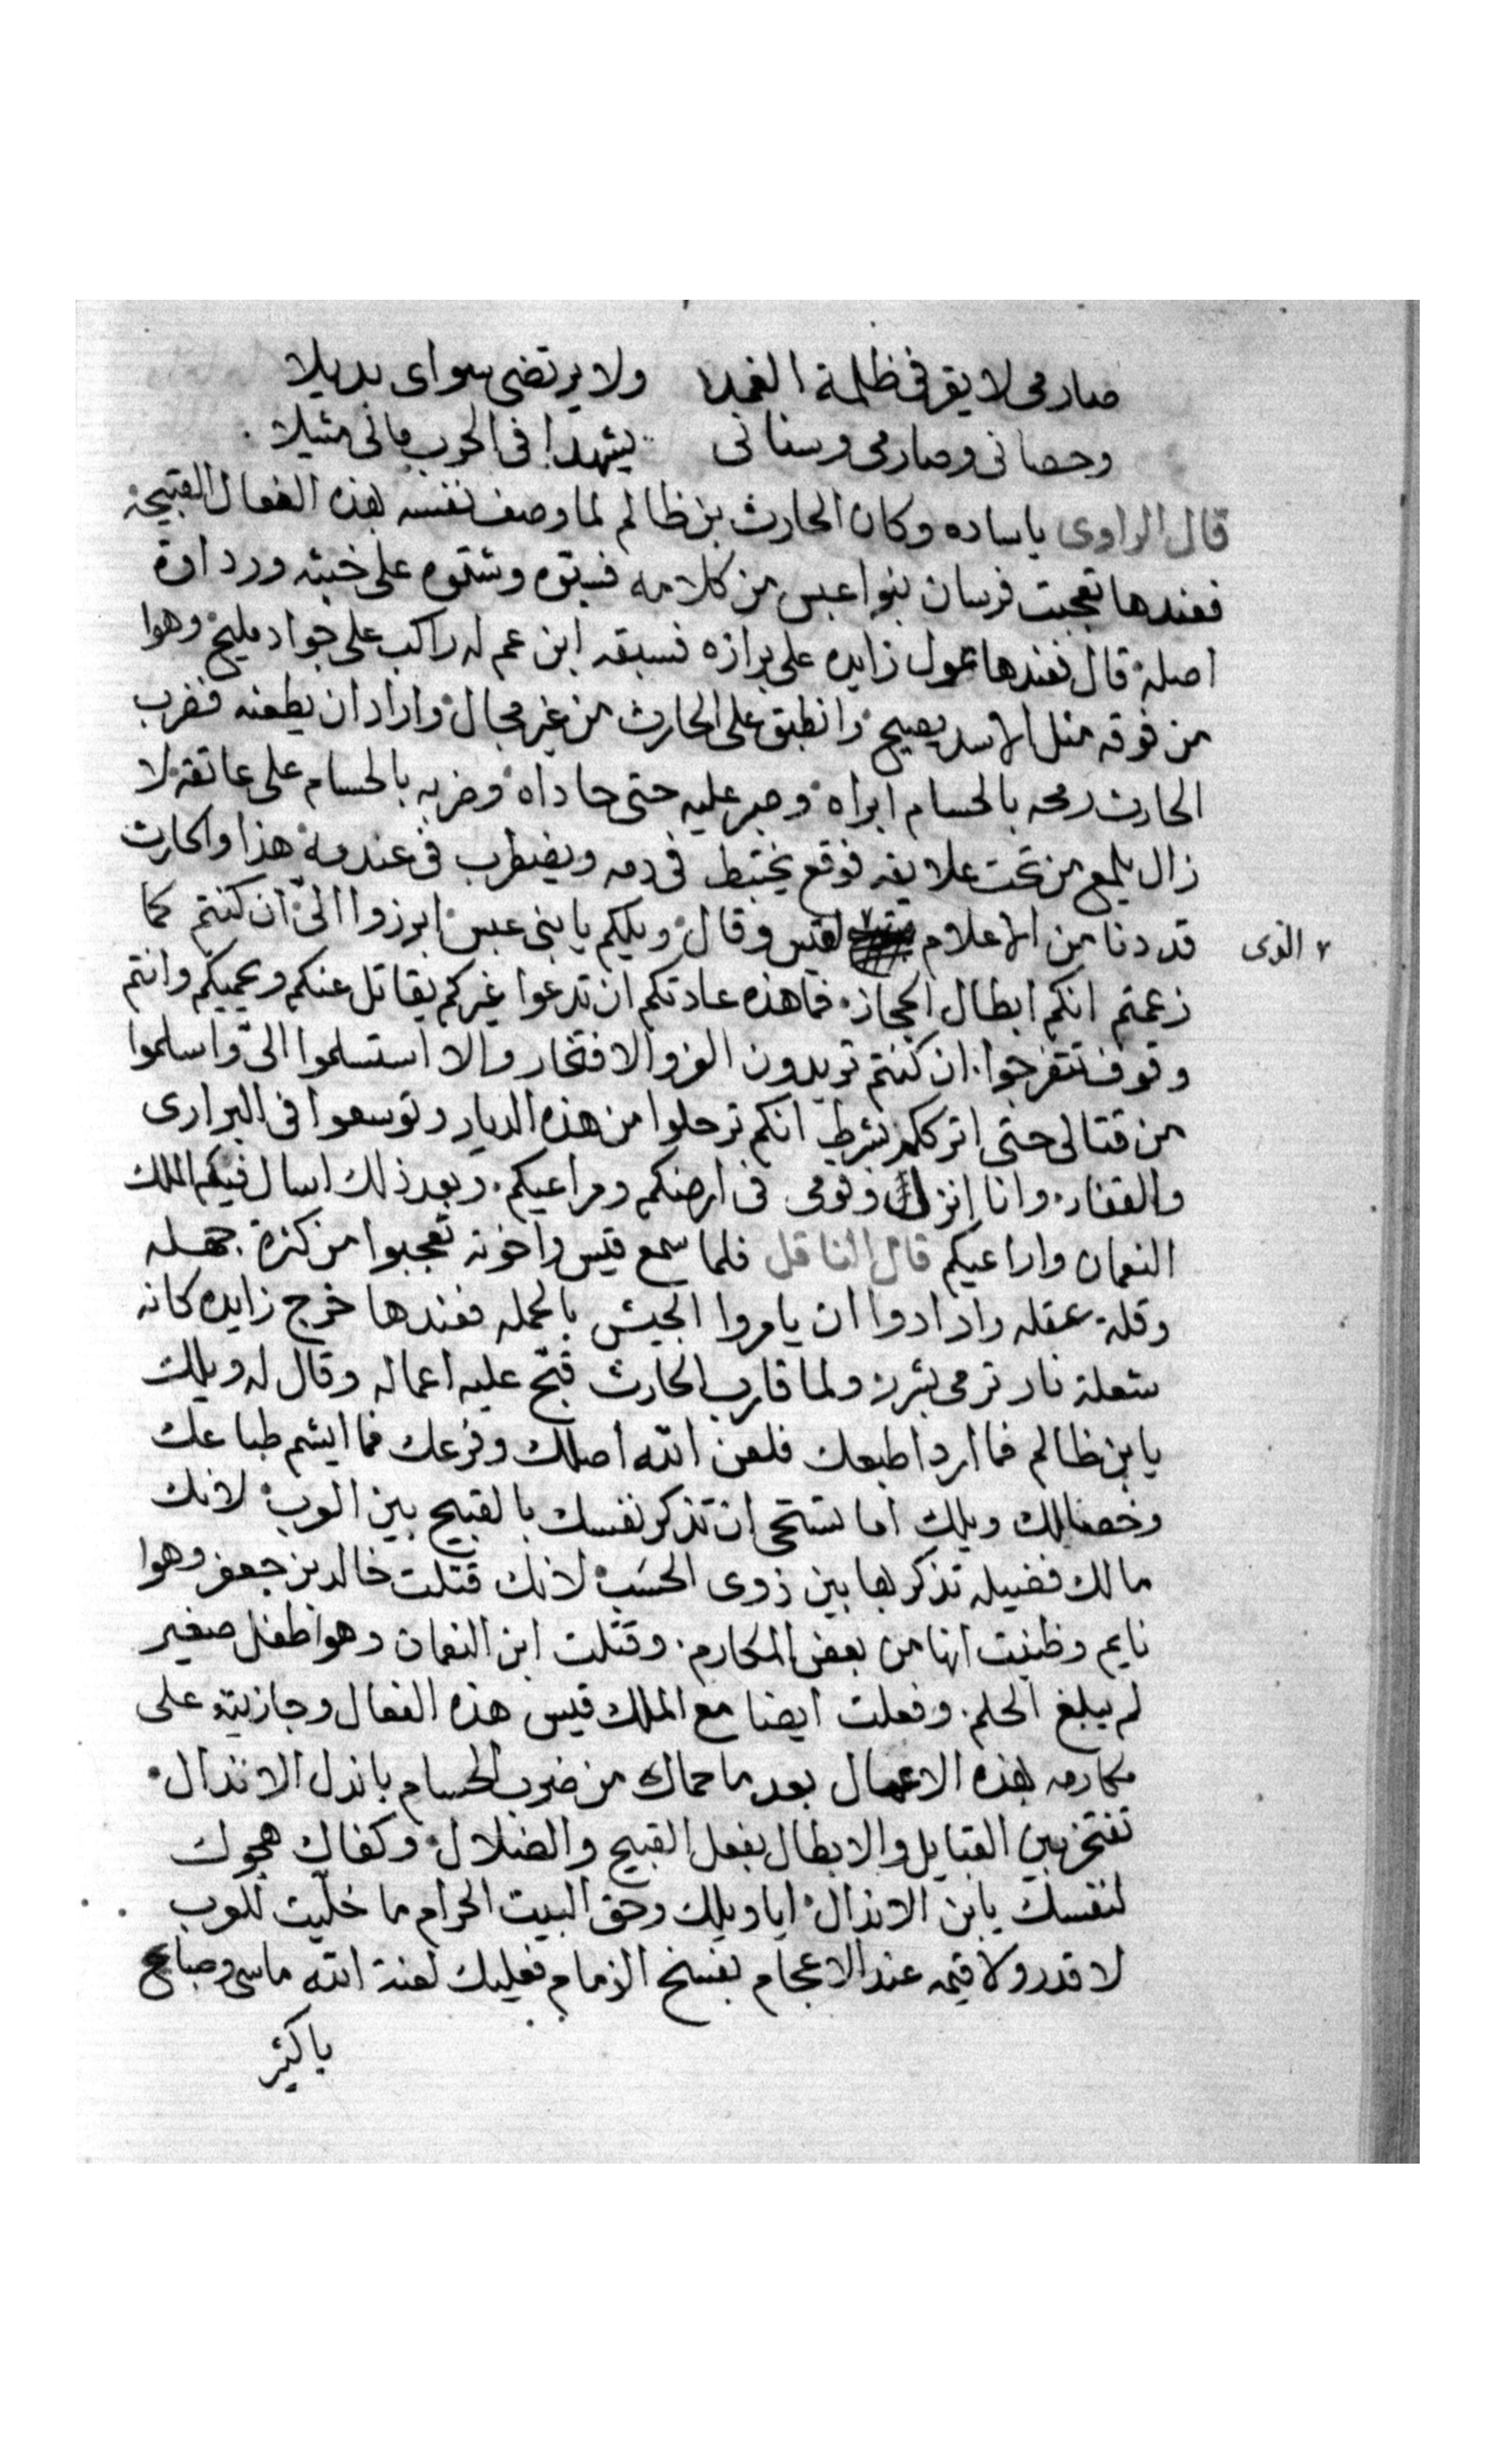 صارمى لا يقر فى ظلمة الغمد ولا يرتضى سواى بديلا
وحصانى وصارمى وسنانى يشهدا فى الحرب مانى مثيلا
قال الراوى ياساده وكان الحارث بن ظالم لما وصف نفسه بهذه الفعال القبيحة
فعندها تعجبت فرسان بنوا عبس من كلامه فسبّوه وشتموه على خبثه وردداوة
اصله قال فعندها عول زايده على برازه فسبقه ابن عم له راكب على جواد مليح وهوا
من فوقه مثل الاسد يصيح وانطبق على الحارث من غير مجال واراد ان يطعنه فضرب
الحارث رمحه بالحسام ابراه وصبر عليه حتى حاداه وضربه بالحسام على عاتقه لا
زال يلمع من تحت علايقه فوقع يختبط فى دمه ويضطرب فى عندمه هذا والحارث
قد دنا من الاعلام لقيس وقال ويلكم يابنى عبس ابرزوا الىّ ان كنتم كما
زعمتم انكم ابطال الحجاز فما هذه عادتكم ان تدعوا غيركم يقاتل عنكم ويحميكم وانتم
وقوف تتفرجوا ان كنتم تريدون العز والافتخار والا استسلموا الىّ واسلموا
من قتالى حتى اترككم بشرط انكم ترحلوا من هذه الديار وتوسعوا فى البرارى
والقفار وانا انزل وقومى فى ارضكم ومراعيكم وبعد ذلك اسال فيكم الملك
النعمان واراعيكم قال الناقل فلما سمع قيس واخوته تعجبوا من كثرة جهله
وقلة عقله وارادوا ان يامروا الجيش بالحمله فعندها خرج زايده كانه
شعلة نار ترمى بشرر ولما قارب الحارث قبّح عليه اعماله وقال له ويلك
يابن ظالم فما اردا طبعك فلعن الله اصلك وفرعك فما ايشم طباعك
وخصالك ويلك اما تستحى ان تذكر نفسك بالقبيح بين العرب لانك
مالك فضيله تذكر بها بين ذوى الحسب لانك قتلت خالد بن جعفر وهوا
نايم وظنيت انها من بعض المكارم وقتلت ابن النعمان وهوا طفل صغير
لم يبلغ الحلم وفعلت ايضا مع الملك قيس هذه الفعال وجازيته على
مكارمه بهذه الاعمال بعد ما حماك من ضرب الحسام ياندل الاندال
تفتخر بين القبايل والابطال بفعل القبيح والضلال وكفاك هجوك
لنفسك يابن الاندال اياويلك وحق البيت الحرام ما خلّيت للعرب
لا قدر ولا قيمه عند الاعجام بفسخ الزمام فعليك لعنة الله ماسى وصباح
ياكثير